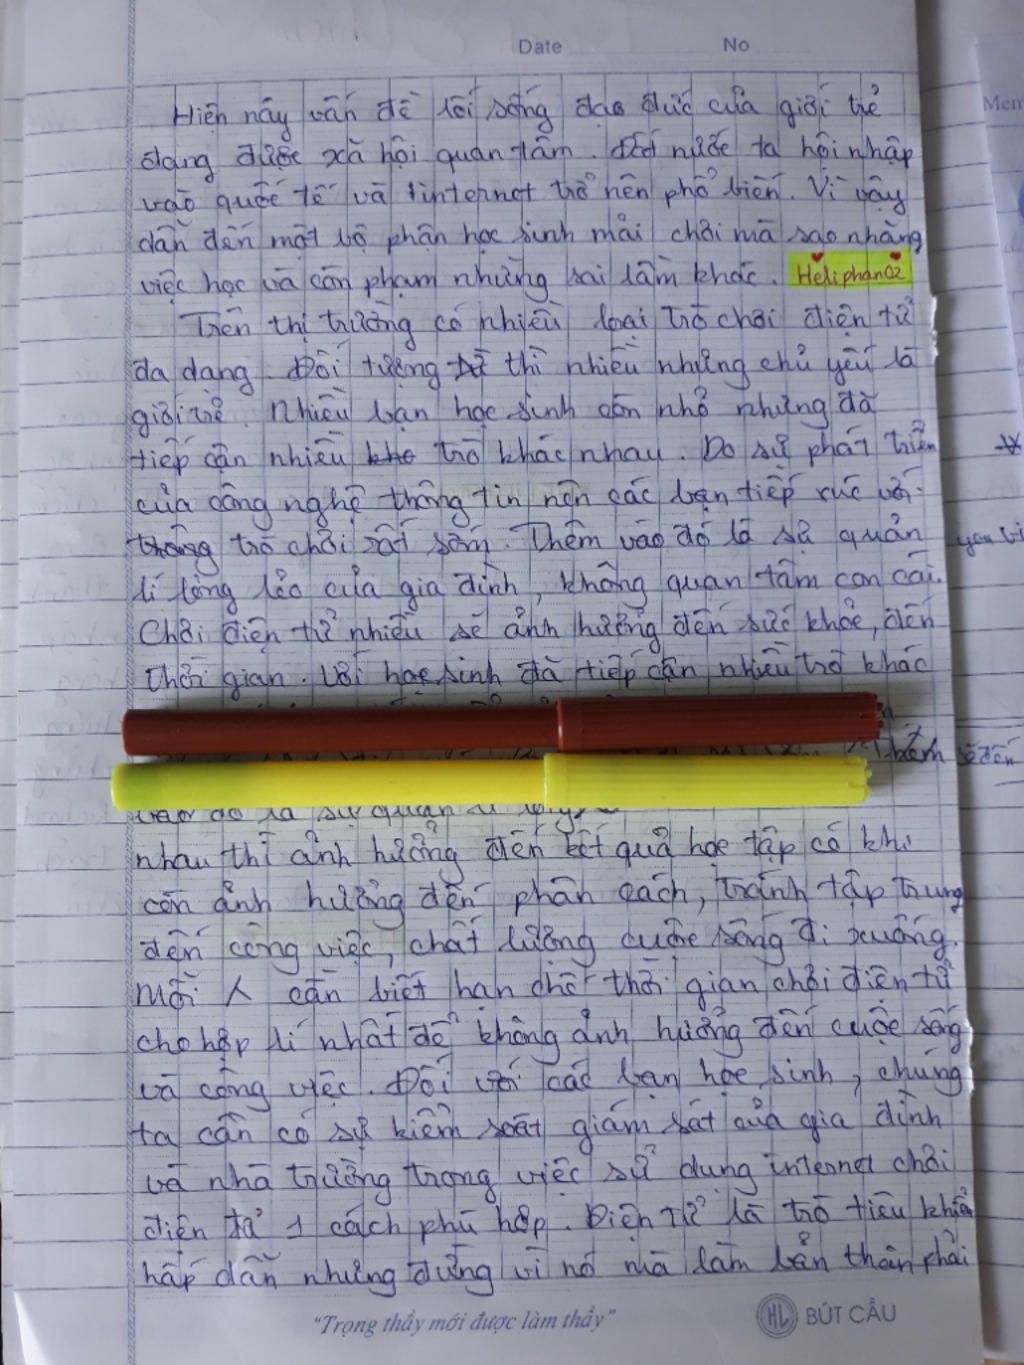 Date No
Hiện nay vấn đề lối sống đạo đức của giới trẻ
đang được xã hội quan tâm. Đất nước ta hội nhập
vào quốc tế và internet trở nên phổ biến. Vì vậy
dẫn đến một bộ phận học sinh mải chơi mà sao nhãng
việc học và còn phạm những sai lầm khác. Heliphan02
Trên thị trường có nhiều loại trò chơi điện tử
đa dạng. Đối tượng thì nhiều nhưng chủ yếu là
giới trẻ. Nhiều bạn học sinh còn nhỏ nhưng đã
tiếp cận nhiều trò khác nhau. Do sự phát triển
của công nghệ thông tin nên các bạn tiếp xúc với
trò chơi rất sớm. Thêm vào đó là sự quản
lí lỏng lẻo của gia đình, không quan tâm con cái.
Chơi điện tử nhiều sẽ ảnh hưởng đến sức khỏe, đến
thời gian. Với học sinh đã tiếp cận nhiều trò khác
vào đó là sự quản lí lỏng
nhau thì ảnh hưởng đến kết quả học tập có khi
còn ảnh hưởng đến phân cách, tránh tập trung
đến công việc, chất lượng cuộc sống đi xuống.
Mỗi người cần biết hạn chế thời gian chơi điện tử
cho hợp lí nhất để không ảnh hưởng đến cuộc sống
và công việc. Đối với các bạn học sinh, chúng
ta cần có sự kiểm soát giám sát của gia đình
và nhà trường trong việc sử dụng internet chơi
điện tử 1 cách phù hợp. Điện tử là trò tiêu khiển
hấp dẫn nhưng đừng vì nó mà làm bản thân phải
"Trọng thầy mới được làm thầy" HL BÚT CẦU